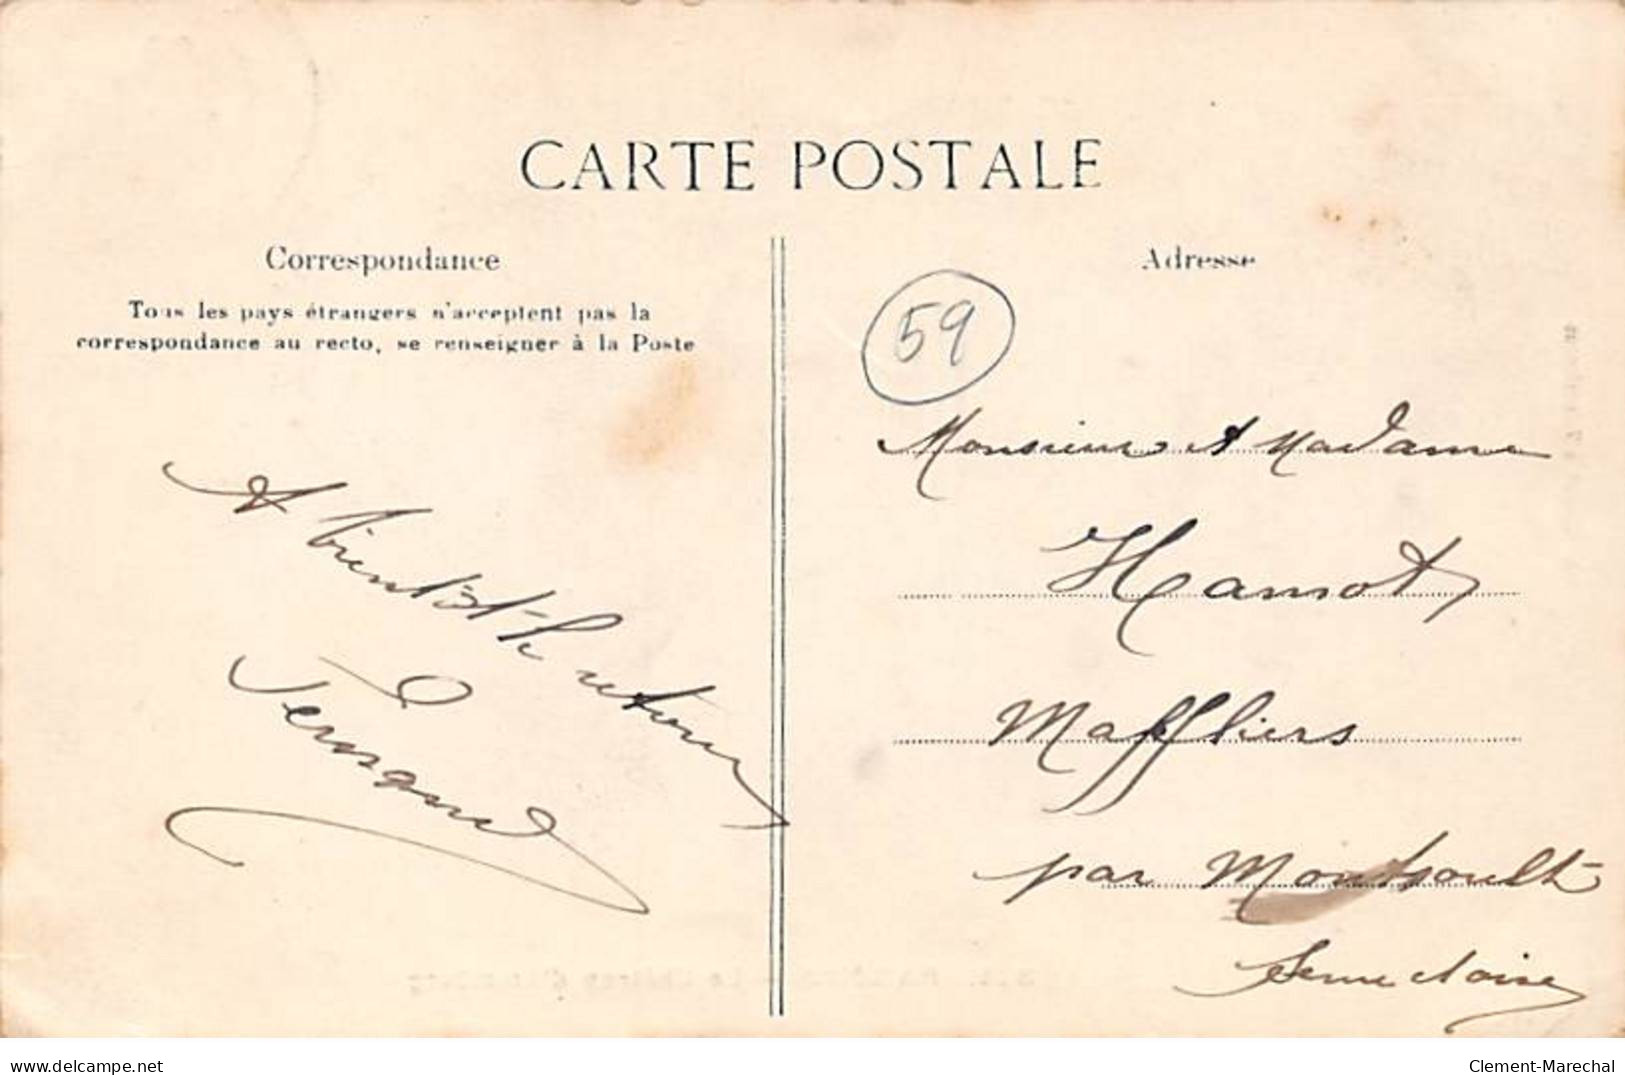 CARTE POSTALE
Correspondance
Tous les pays étrangers n'acceptent pas la
correspondance au recto, se renseigner à la Poste
A bientôt le retour
Fernand
Adresse
59
Monsieur et Madame
Hamot
Maffliers
par Montsoult
Seine et Oise
delcampe.net
Clement-Marechal